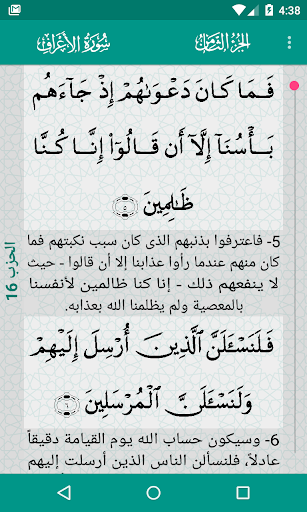 4:38
الجزء الثامن
سُورَةُ الأَعْرَافِ
فَمَا كَانَ دَعْوَىٰهُمْ إِذْ جَآءَهُم
بَأْسُنَآ إِلَّآ أَن قَالُوٓا۟ إِنَّا كُنَّا
ظَٰلِمِينَ ٥
5- فاعترفوا بذنبهم الذى كان سبب نكبتهم فما
كان منهم عندما رأوا عذابنا إلا أن قالوا - حيث لا
ينفعهم ذلك - إنا كنا ظالمين لأنفسنا
بالمعصية ولم يظلمنا الله بعذابه.
الحزب 16
فَلَنَسْـَٔلَنَّ ٱلَّذِينَ أُرْسِلَ إِلَيْهِمْ
وَلَنَسْـَٔلَنَّ ٱلْمُرْسَلِينَ ٦
6- وسيكون حساب الله يوم القيامة دقيقاً
عادلاً، فلنسألن الناس الذين أرسلت إليهم